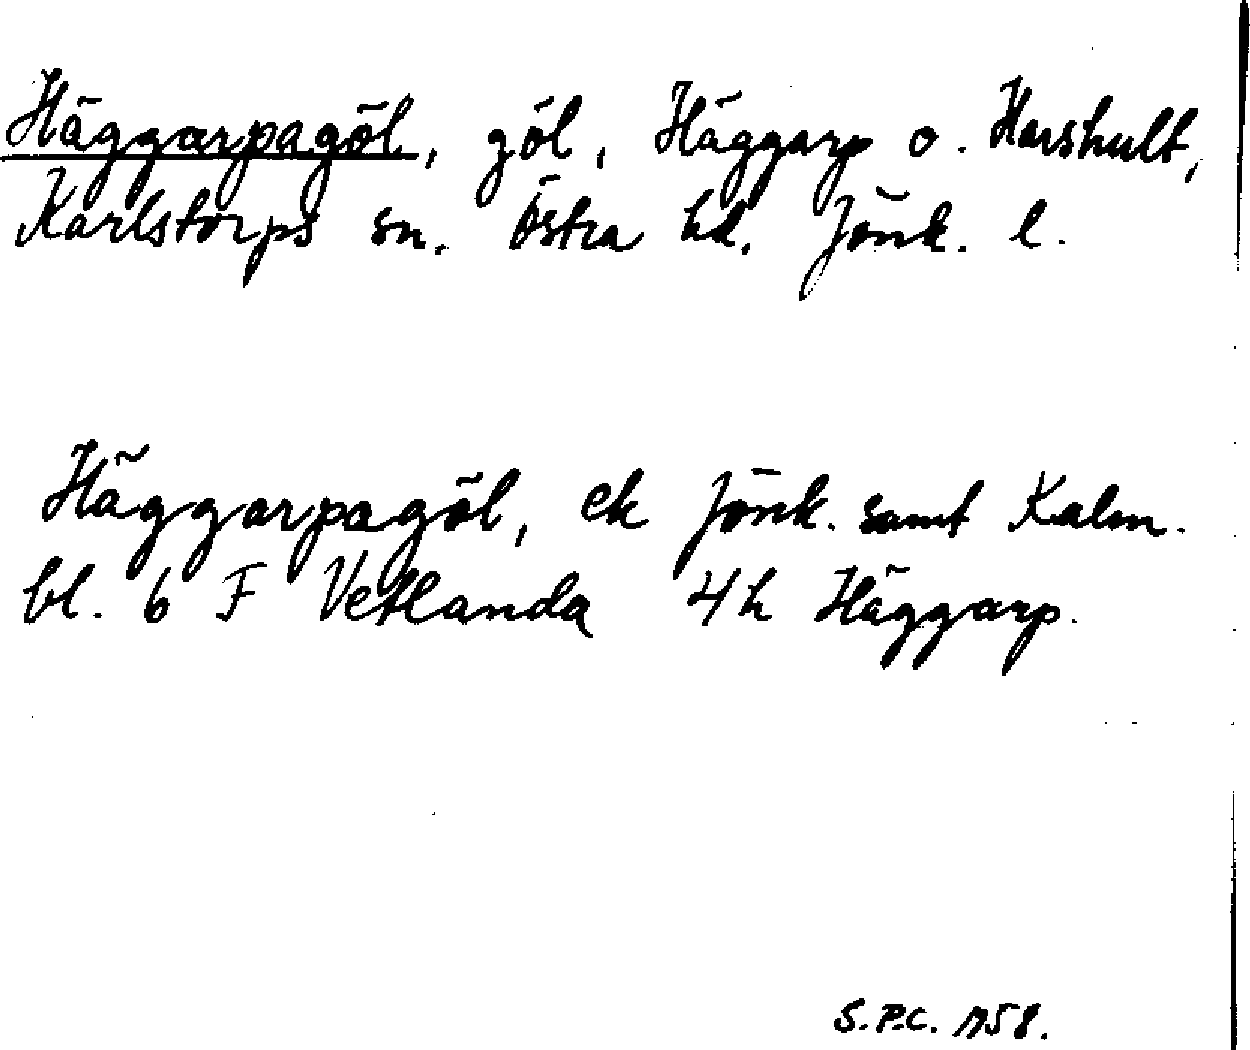 Häggarpagöl, göl, Häggarp o. Harshult,
Karlstorps sn. Östra hd. Jönk. l.
Häggarpagöl, ek Jönk. samt Kalm.
bl. 6 F Vetlanda 4h Häggarp.
S.P.C. 1958.